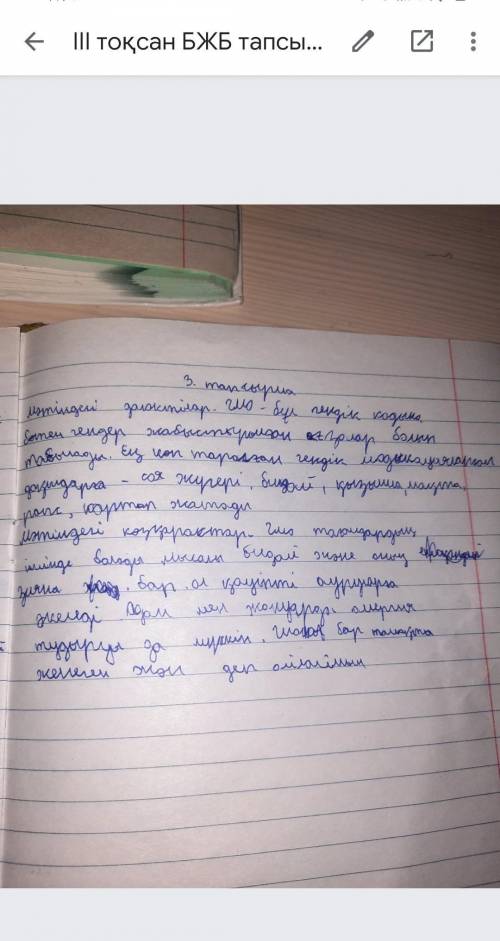 III тоқсан БЖБ тапсы...
3. тапсырма
мәтіндегі дәлелстілар. ГМО - бұл гендік кодына
бөтен гендер жабыстырылған ағзалар болып
табылады. Ең көп таралған гендік модификацияланған
дақылдарға - соя жүгері, бидай, қызылша, мақта,
рапс, картоп жатады
мәтіндегі көзқарастар. Гмо тағамдардың
ішінде болады мысалы бидай және оның
зияны бар. ол қауіпті ауруларға
әкеледі. Адам мен жануарлар аллергия
тудыруы да мүмкін. Гмо бар тамақты
жемеген жөн деп ойлаймын